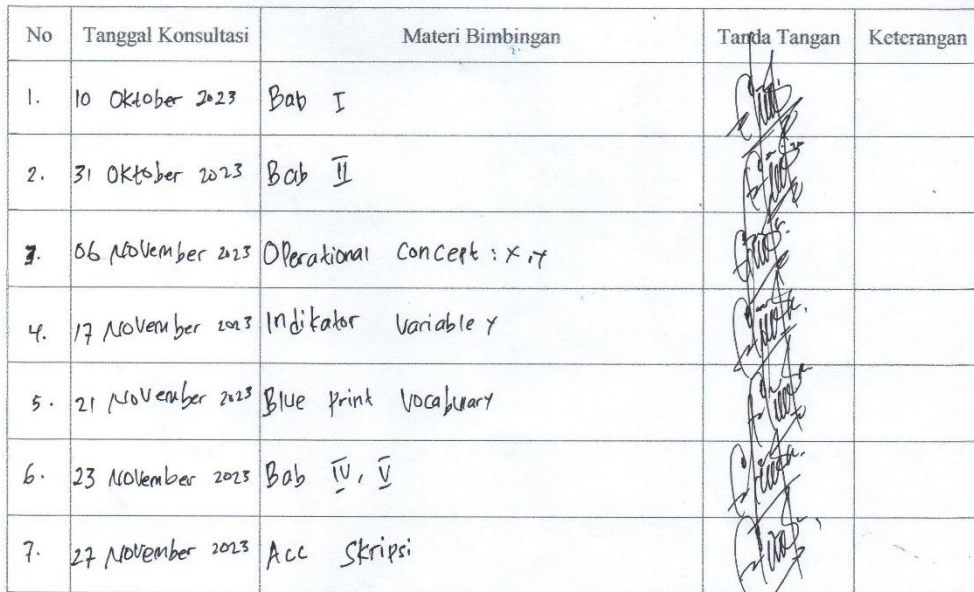 No Tanggal Konsultasi Materi Bimbingan Tanda Tangan Keterangan
1. 10 Oktober 2023 Bab I
2. 31 Oktober 2023 Bab II
3. 06 November 2023 Operational Concept : X, Y
4. 17 November 2023 Indikator Variable Y
5. 21 November 2023 Blue Print Vocabulary
6. 23 November 2023 Bab IV, V
7. 27 November 2023 Acc Skripsi